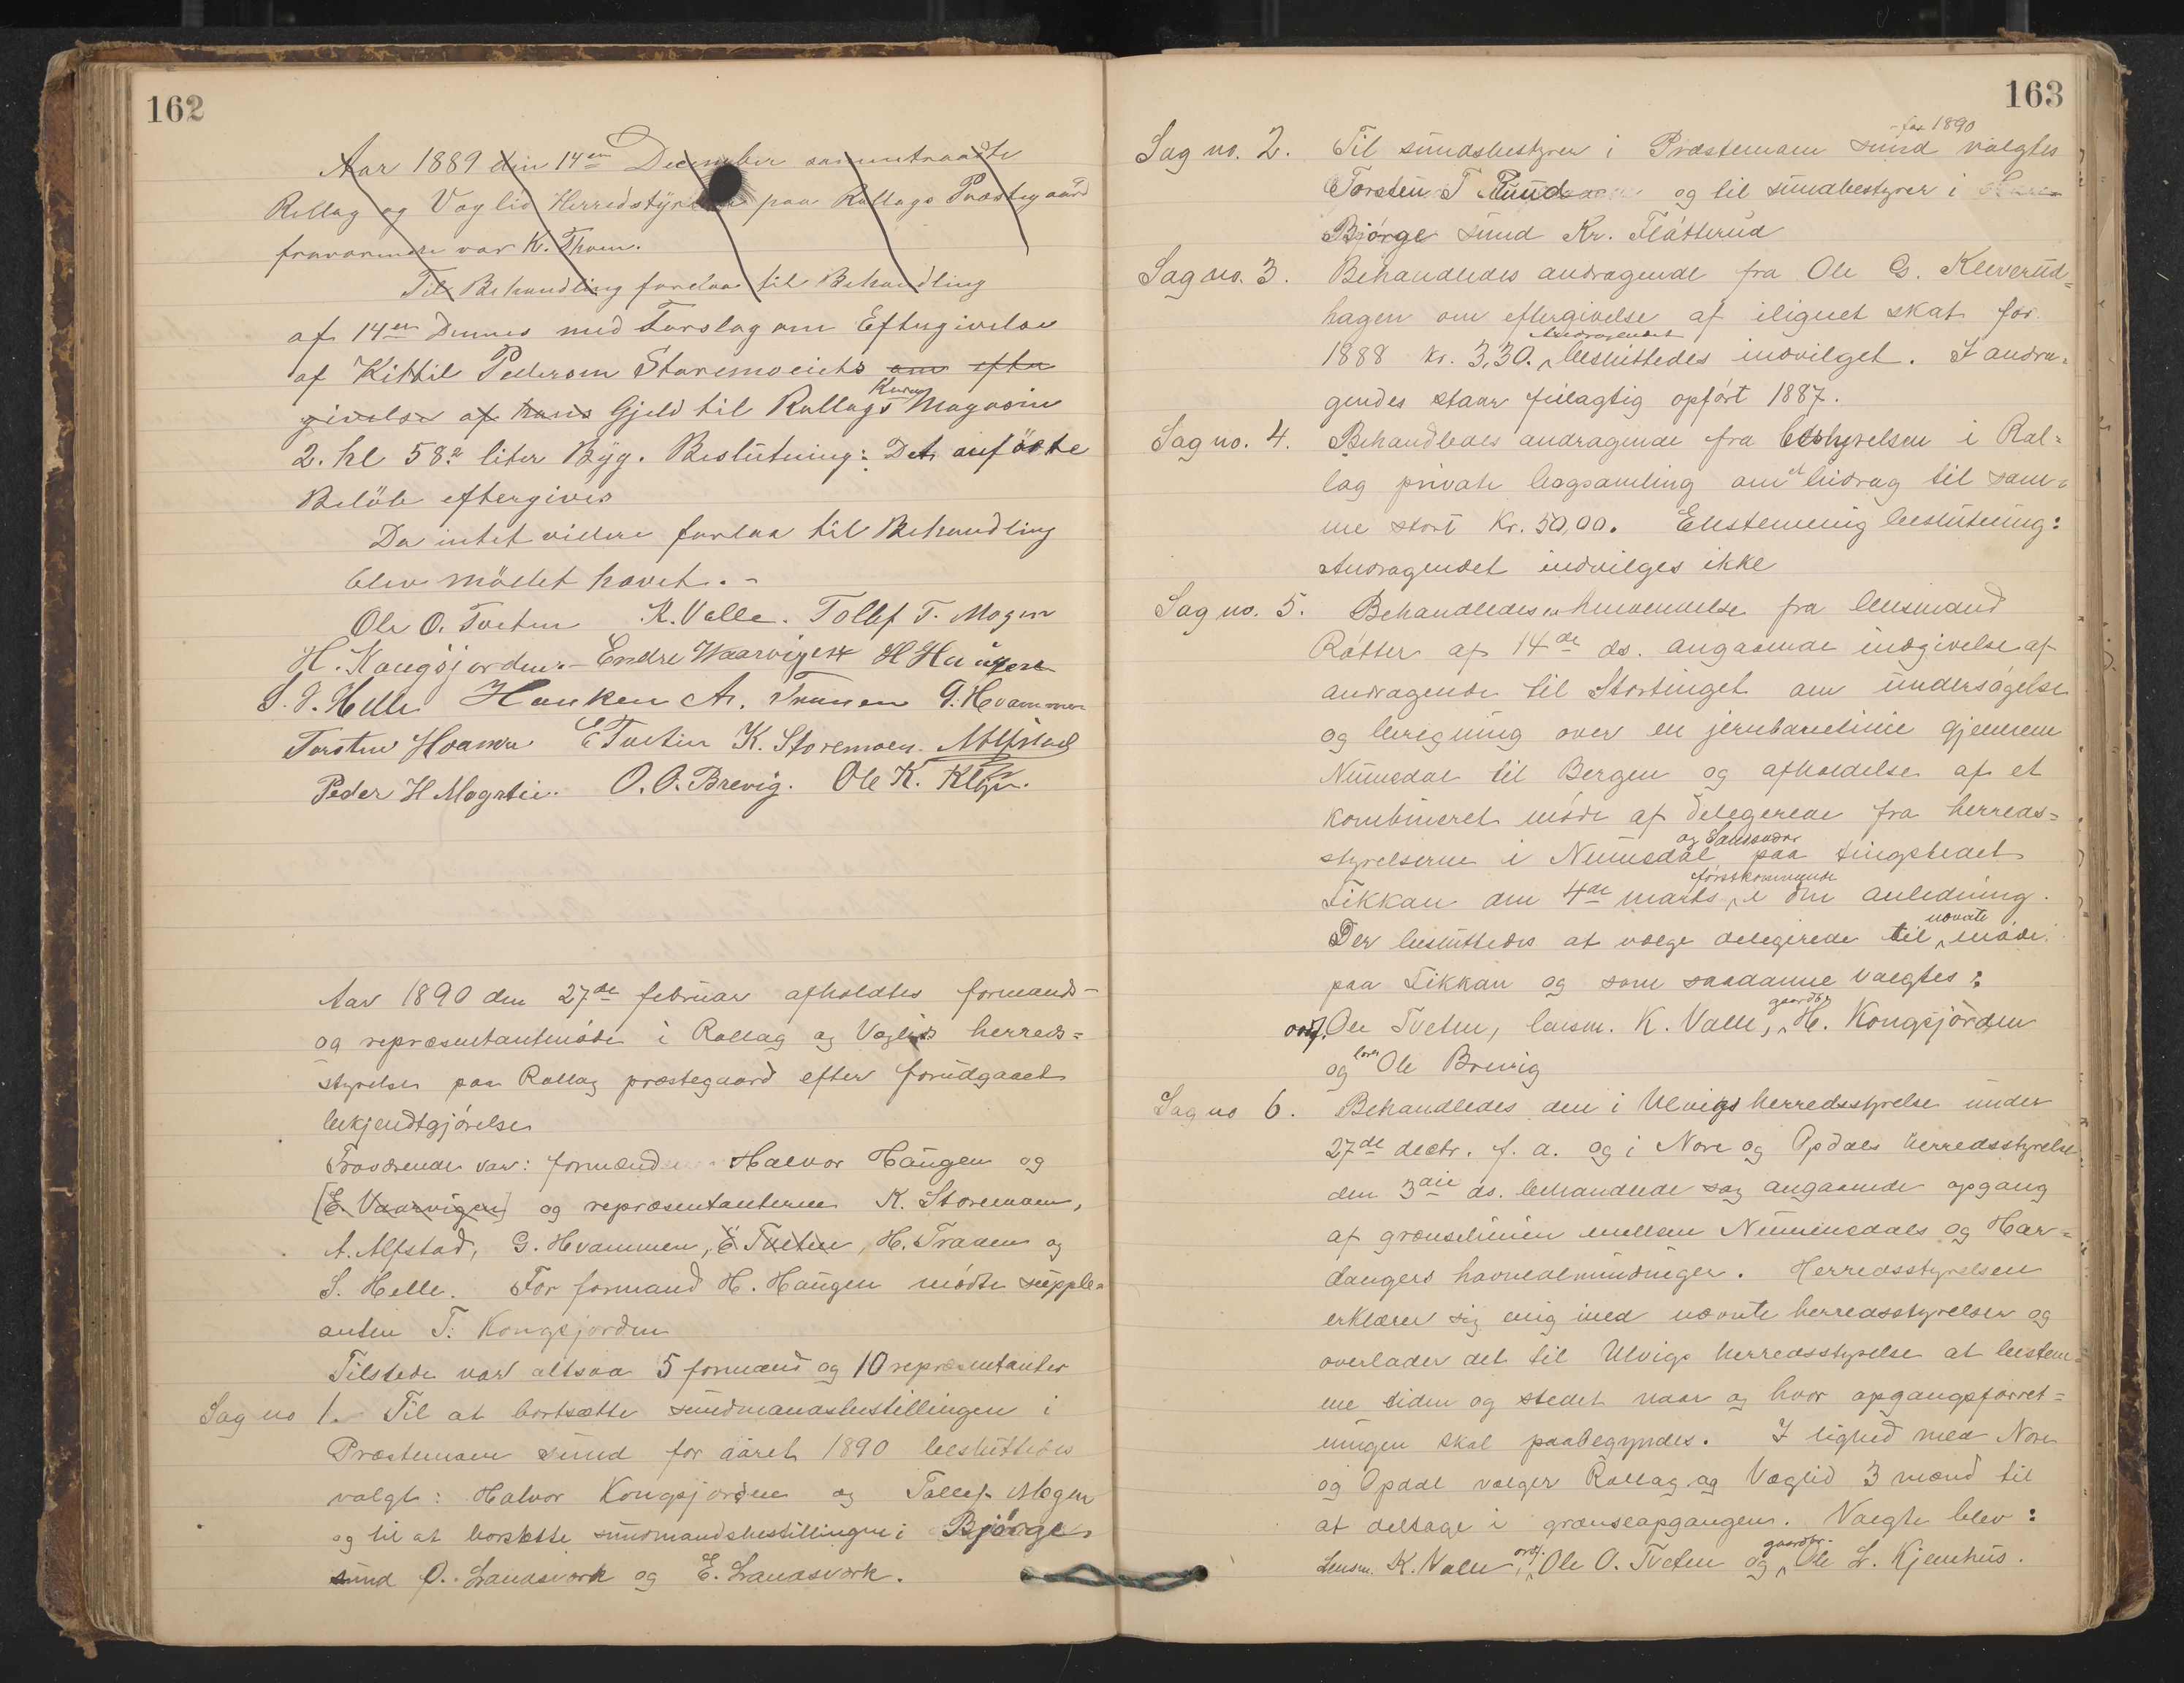 162
Aar 1889 din 14en December sammentraadte
Rollag og Væglid Herredstyrelse paa Rollags Præstegaard
fraværende var K. Thom.
Til Behandling forelaa til Behandling
af 14en Dennes med Forslag om Eftergivelse
af Kittil Pedersen Storemoens om efter
givelse af hans Gjeld til Rollags Korn Magasin
2. hl 58² liter Byg. Beslutning: Det anförte
Belöb eftergives
Da intet videre forelaa til Behandling
blev mödet hævet. -
Ole O. Tveten K. Valle. Tollef T. Mogen
H. Kongsjorden - Endre Waarvigen H Haugen
S. J. Helle Haaken A. Traaen G. Hvammen
Torsten Hvammen E Tveten K. Storemoen. A Alfstad
Peder H Mogstei. O. O. Brevig. Ole K.
Aar 1890 den 27de februar afholdtes formands-
og repræsentantmöde i Rollag og Veglids herreds=
styrelse paa Rollag præstegaard efter forudgaaet
bekjendtgjörelse
Fraværende var: formænd Halvor Haugen og
[E. Vaarvigen] og repræsentanterne K. Storemoen,
A. Alfstad, G. Hvammen, E Tveten, H. Traaen og
S. Helle. For formand H. Haugen mödte supple=
anten T. Kongsjorden
Tilstede var altsaa 5 formænd og 10 repræsentanter
Sag no 1. Til at bortsætte sundmandsbestillingen i
Præstemoen sund for aaret 1890 besluttedes
valgt: Halvor Kongsjorden og Tollef Mogen
og til at borsætte sundmandsbestillingen i Björge
sund O. Landsverk og E. Landsverk.
163
Sag no. 2. Til sundsbestyrer i Præstemoen sund - for 1890 valgtes
Torsten T og til sundbestyrer i
Björge sund Kr. Flåtterud
Sag no. 3. Behandledes andragende fra Ole G. Kleverud=
hagen om eftergivelse af ilignet skat for
1888 kr. 3,30. Andragendet besluttedes indvilget. I andra=
gendes staar feilagtig opfört 1887.
Sag no. 4. Behandledes andragende fra bestyrelsen i Rol=
lag private bogsamling om et bidrag til sam=
me stort Kr. 50,00. Enstemmig beslutning:
Andragendet indvilges ikke
Sag no. 5. Behandledes en henvendelse fra lensmand
Råtter af 14de ds. angaaende indgivelse af
andragende til Stortinget om undersögelse
og beregning over en jernbanelinie gjennem
Numedal til Bergen og afholdelse af et
kombineret möde af delegerede fra herreds=
styrelserne i Numedal og Sandsvær paa tingstedet
Tikkan den 4de marts förstkommende i den anledning.
Der besluttedes at vælge delegerede til nævnte möde
paa Tikkan og som saadanne valgtes:
ordf. Ole Tveten, lensm. K. Valle, gaardbr H. Kongsjorden
og lærer Ole Brevig
Sag no 6. Behandledes den i Ulvigs herredsstyrelse under
27de decbr. f. a. og i Nore og Opdals herredsstyrelse
den 3die ds. behandlede sag angaaende opgang
af grænselinien mellem Nummedals og Har=
dangers havnealmindinger. Herredsstyrelsen
erklærer sig enig med nævnte herredsstyrelser og
overlader det til Ulvigs herredsstyrelse at bestem=
me tiden og stedet naar og hvor opgangsforret=
ningen skal paabegyndes. I lighed med Nore
og Opdal vælger Rollag og Veglid 3 mænd til
at deltage i grænseopgangen. Valgte blev:
Lensm. K. Valle, ordf. Ole O. Tveten og gaardbr. Ole L. Kjemhus.